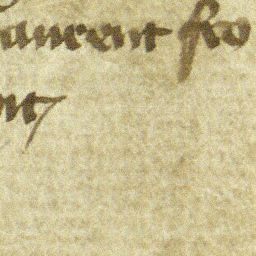 aurent fro
nt